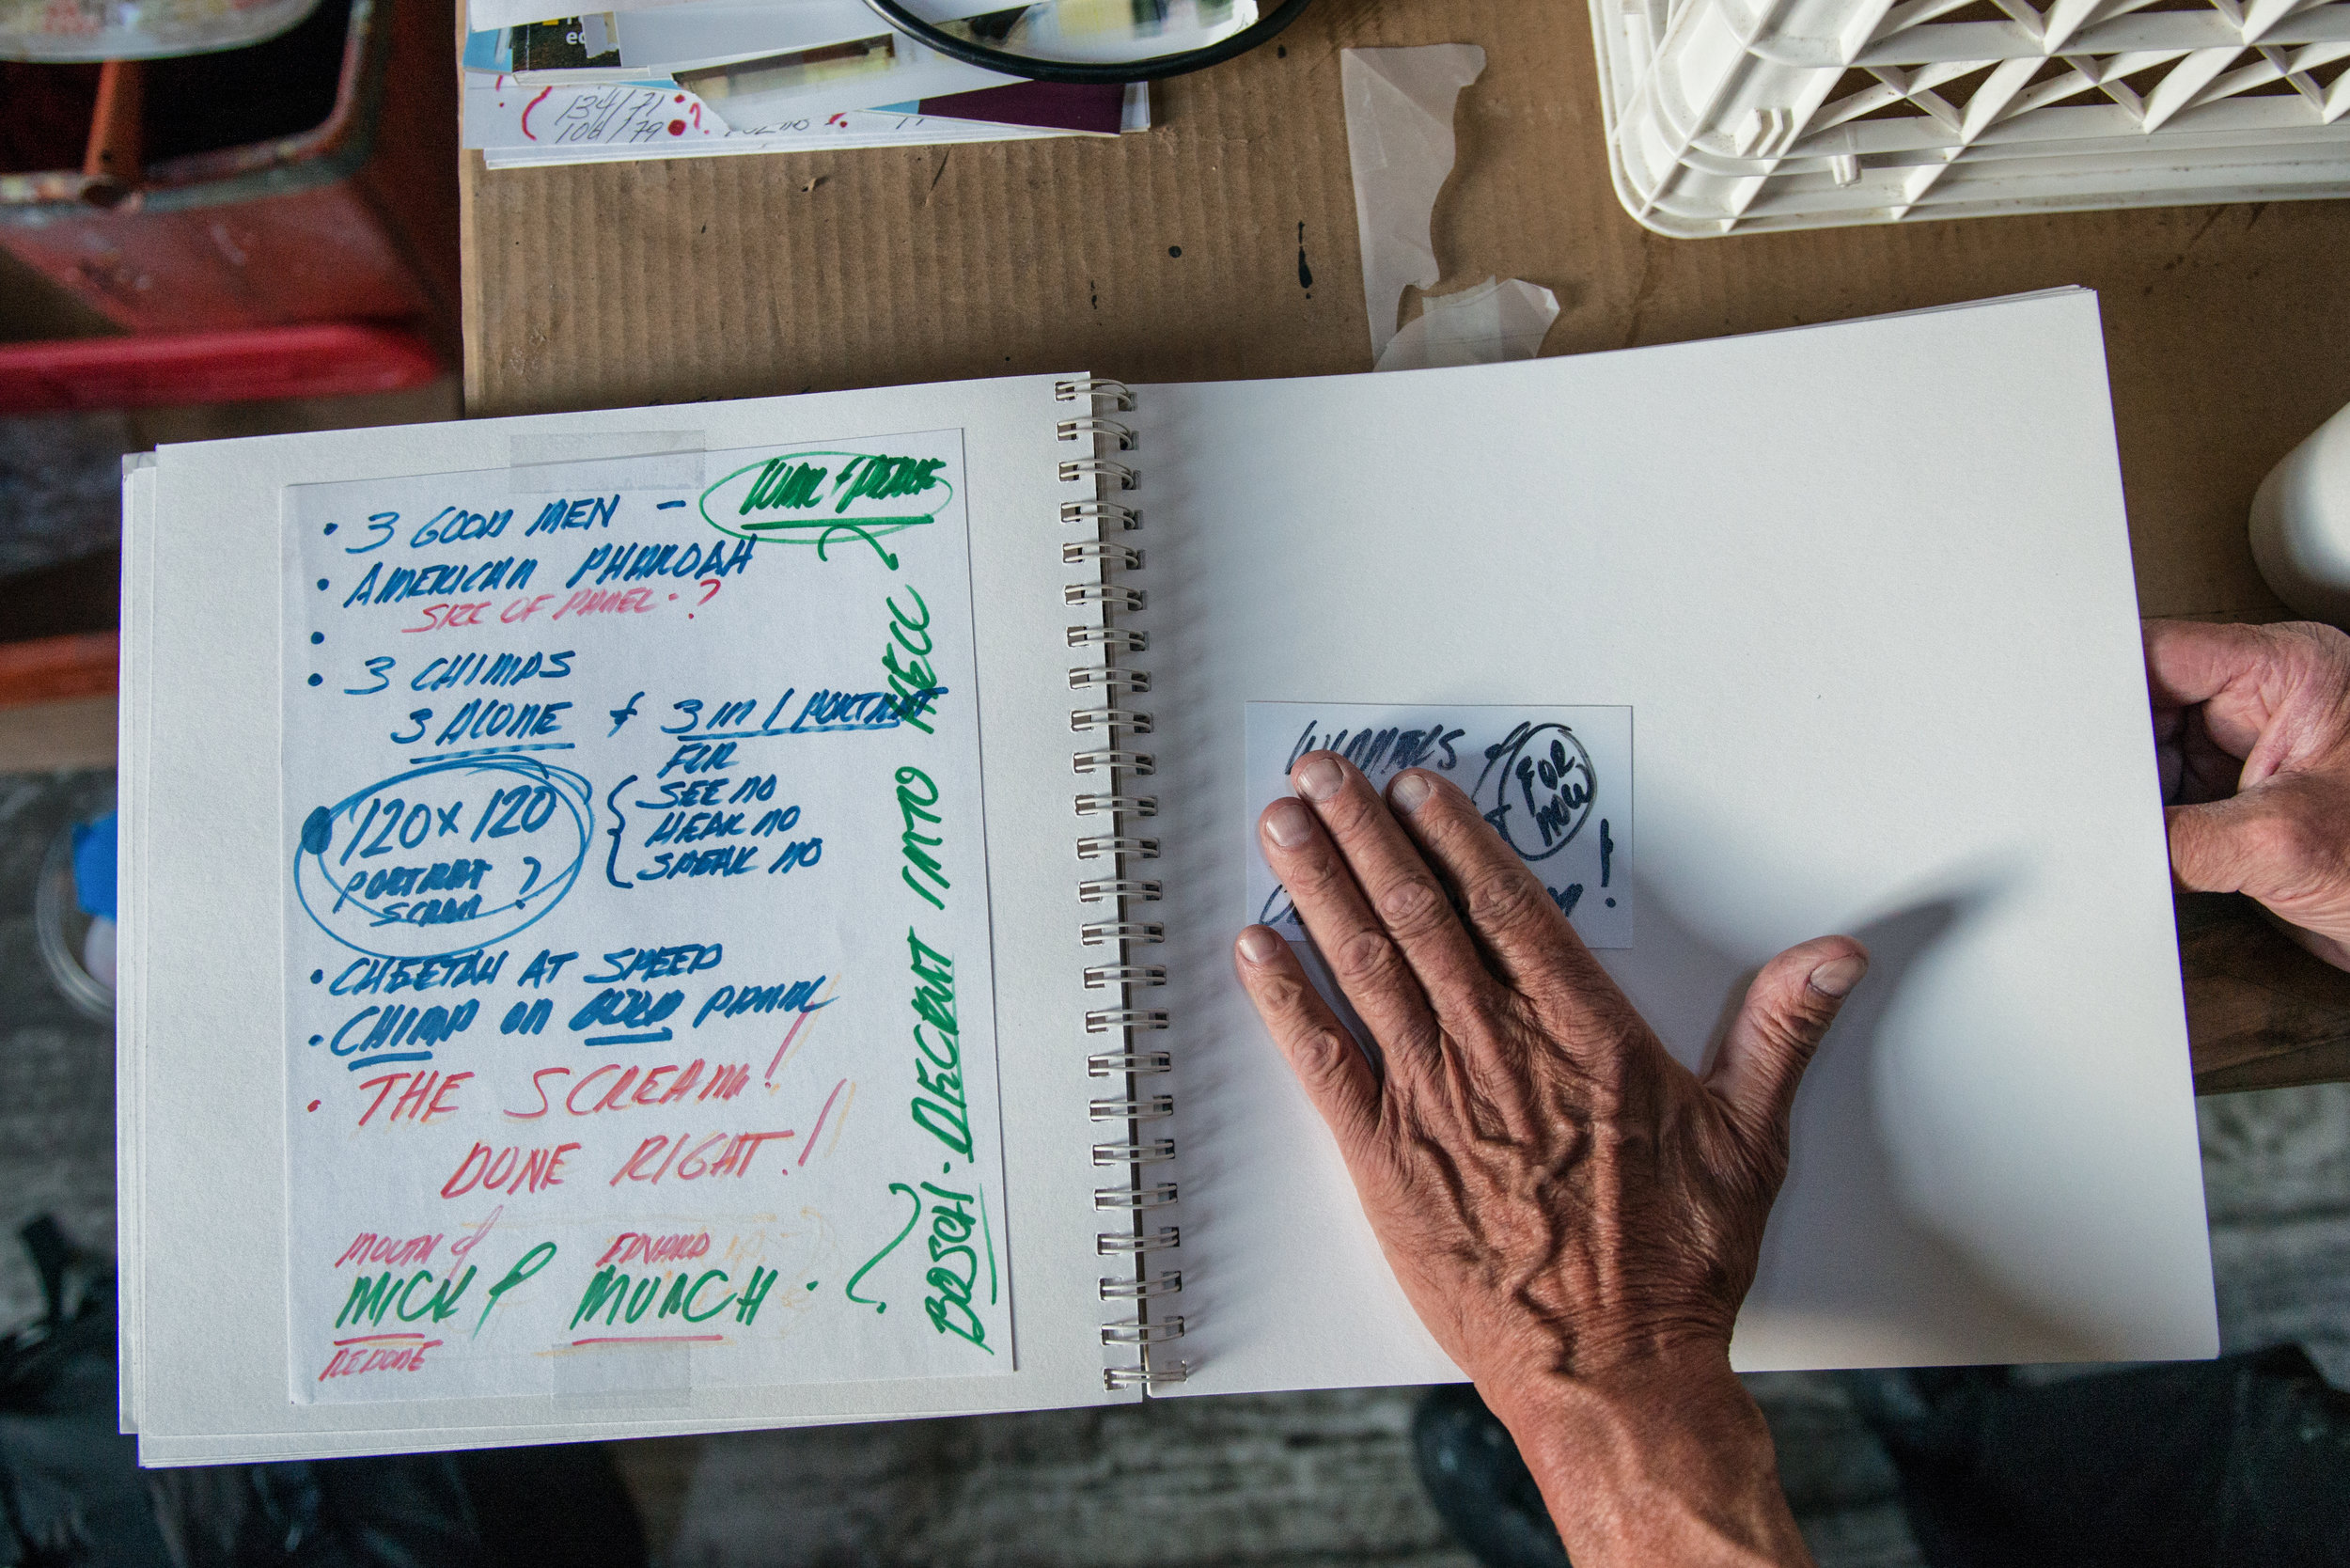 ed
134/71
106/79 ?
• 3 GOOD MEN – WAR & PEACE
• AMERICAN PHAROAH
SIZE OF PANEL - ?
•
• 3 CHIMPS
3 ALONE & 3 IN 1 PORTRAIT
FOR
SEE NO
HEAR NO
SPEAK NO
120 x 120
PORTRAIT ?
• CHEETAH AT SPEED
• CHIMP ON GOLD PANEL
• THE SCREAM!
DONE RIGHT!
MOUTH of EDVARD
MICK & MUNCH •
REDONE
BOSCH - DECENT INTO HELL
FOR
NOW
!